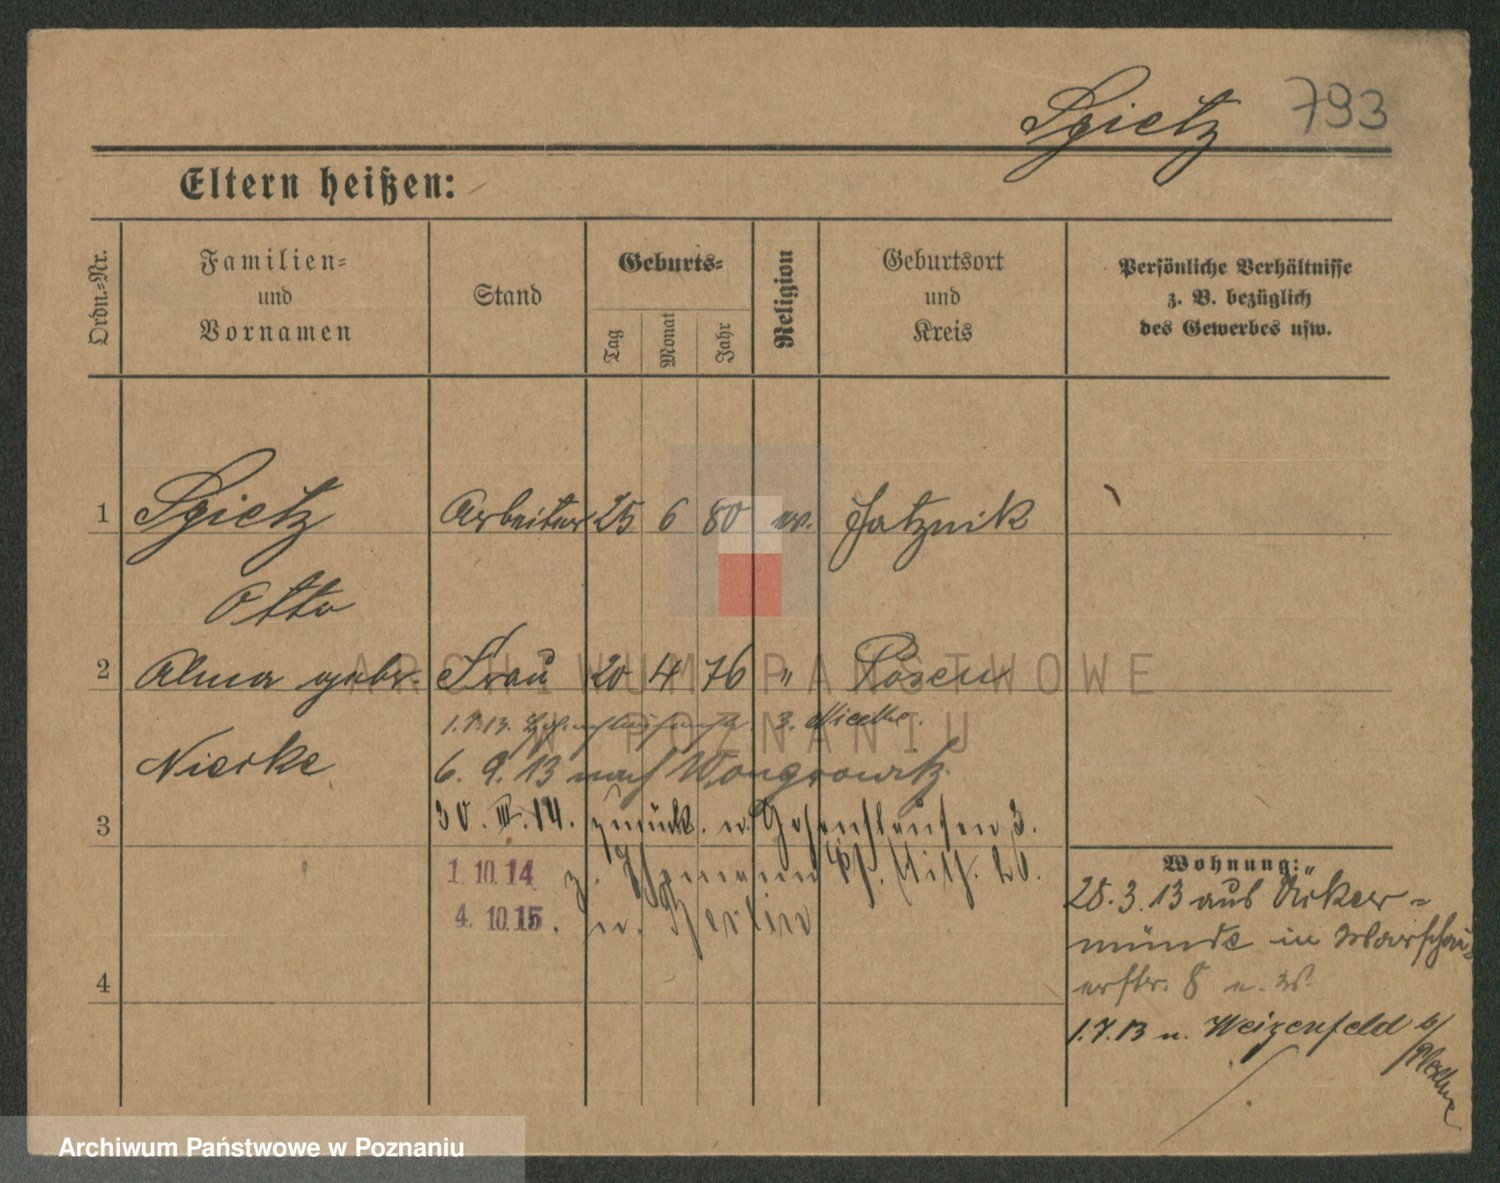 Spietz 793
Eltern heißen:
Ordn.-Nr.
Familien-
und
Vornamen
Stand
Geburts-
Tag
Monat
Jahr
Religion
Geburtsort
und
Kreis
Persönliche Verhältnisse
z. B. bezüglich
des Gewerbes usw.
1 Spietz Arbeiter 25 6 80 ev. Jatznik
Otto
2 Alma gebr. Frau 20 4 76 " Posen
1.7.13. 3.
Nierke 6. 9. 13 nach Wongrowitz.
3 30. III. 14. zurück. n. Hohenstaufen 3.
1. 10. 14 z.
4. 10. 15. n. Berlin
4
Wohnung:
28.3.13 aus Ücker-
münde in Warschau
erstr. 8
1.7.13 n. Weizenfeld b/
ARCHIWUM PAŃSTWOWE
W POZNANIU
Archiwum Państwowe w Poznaniu